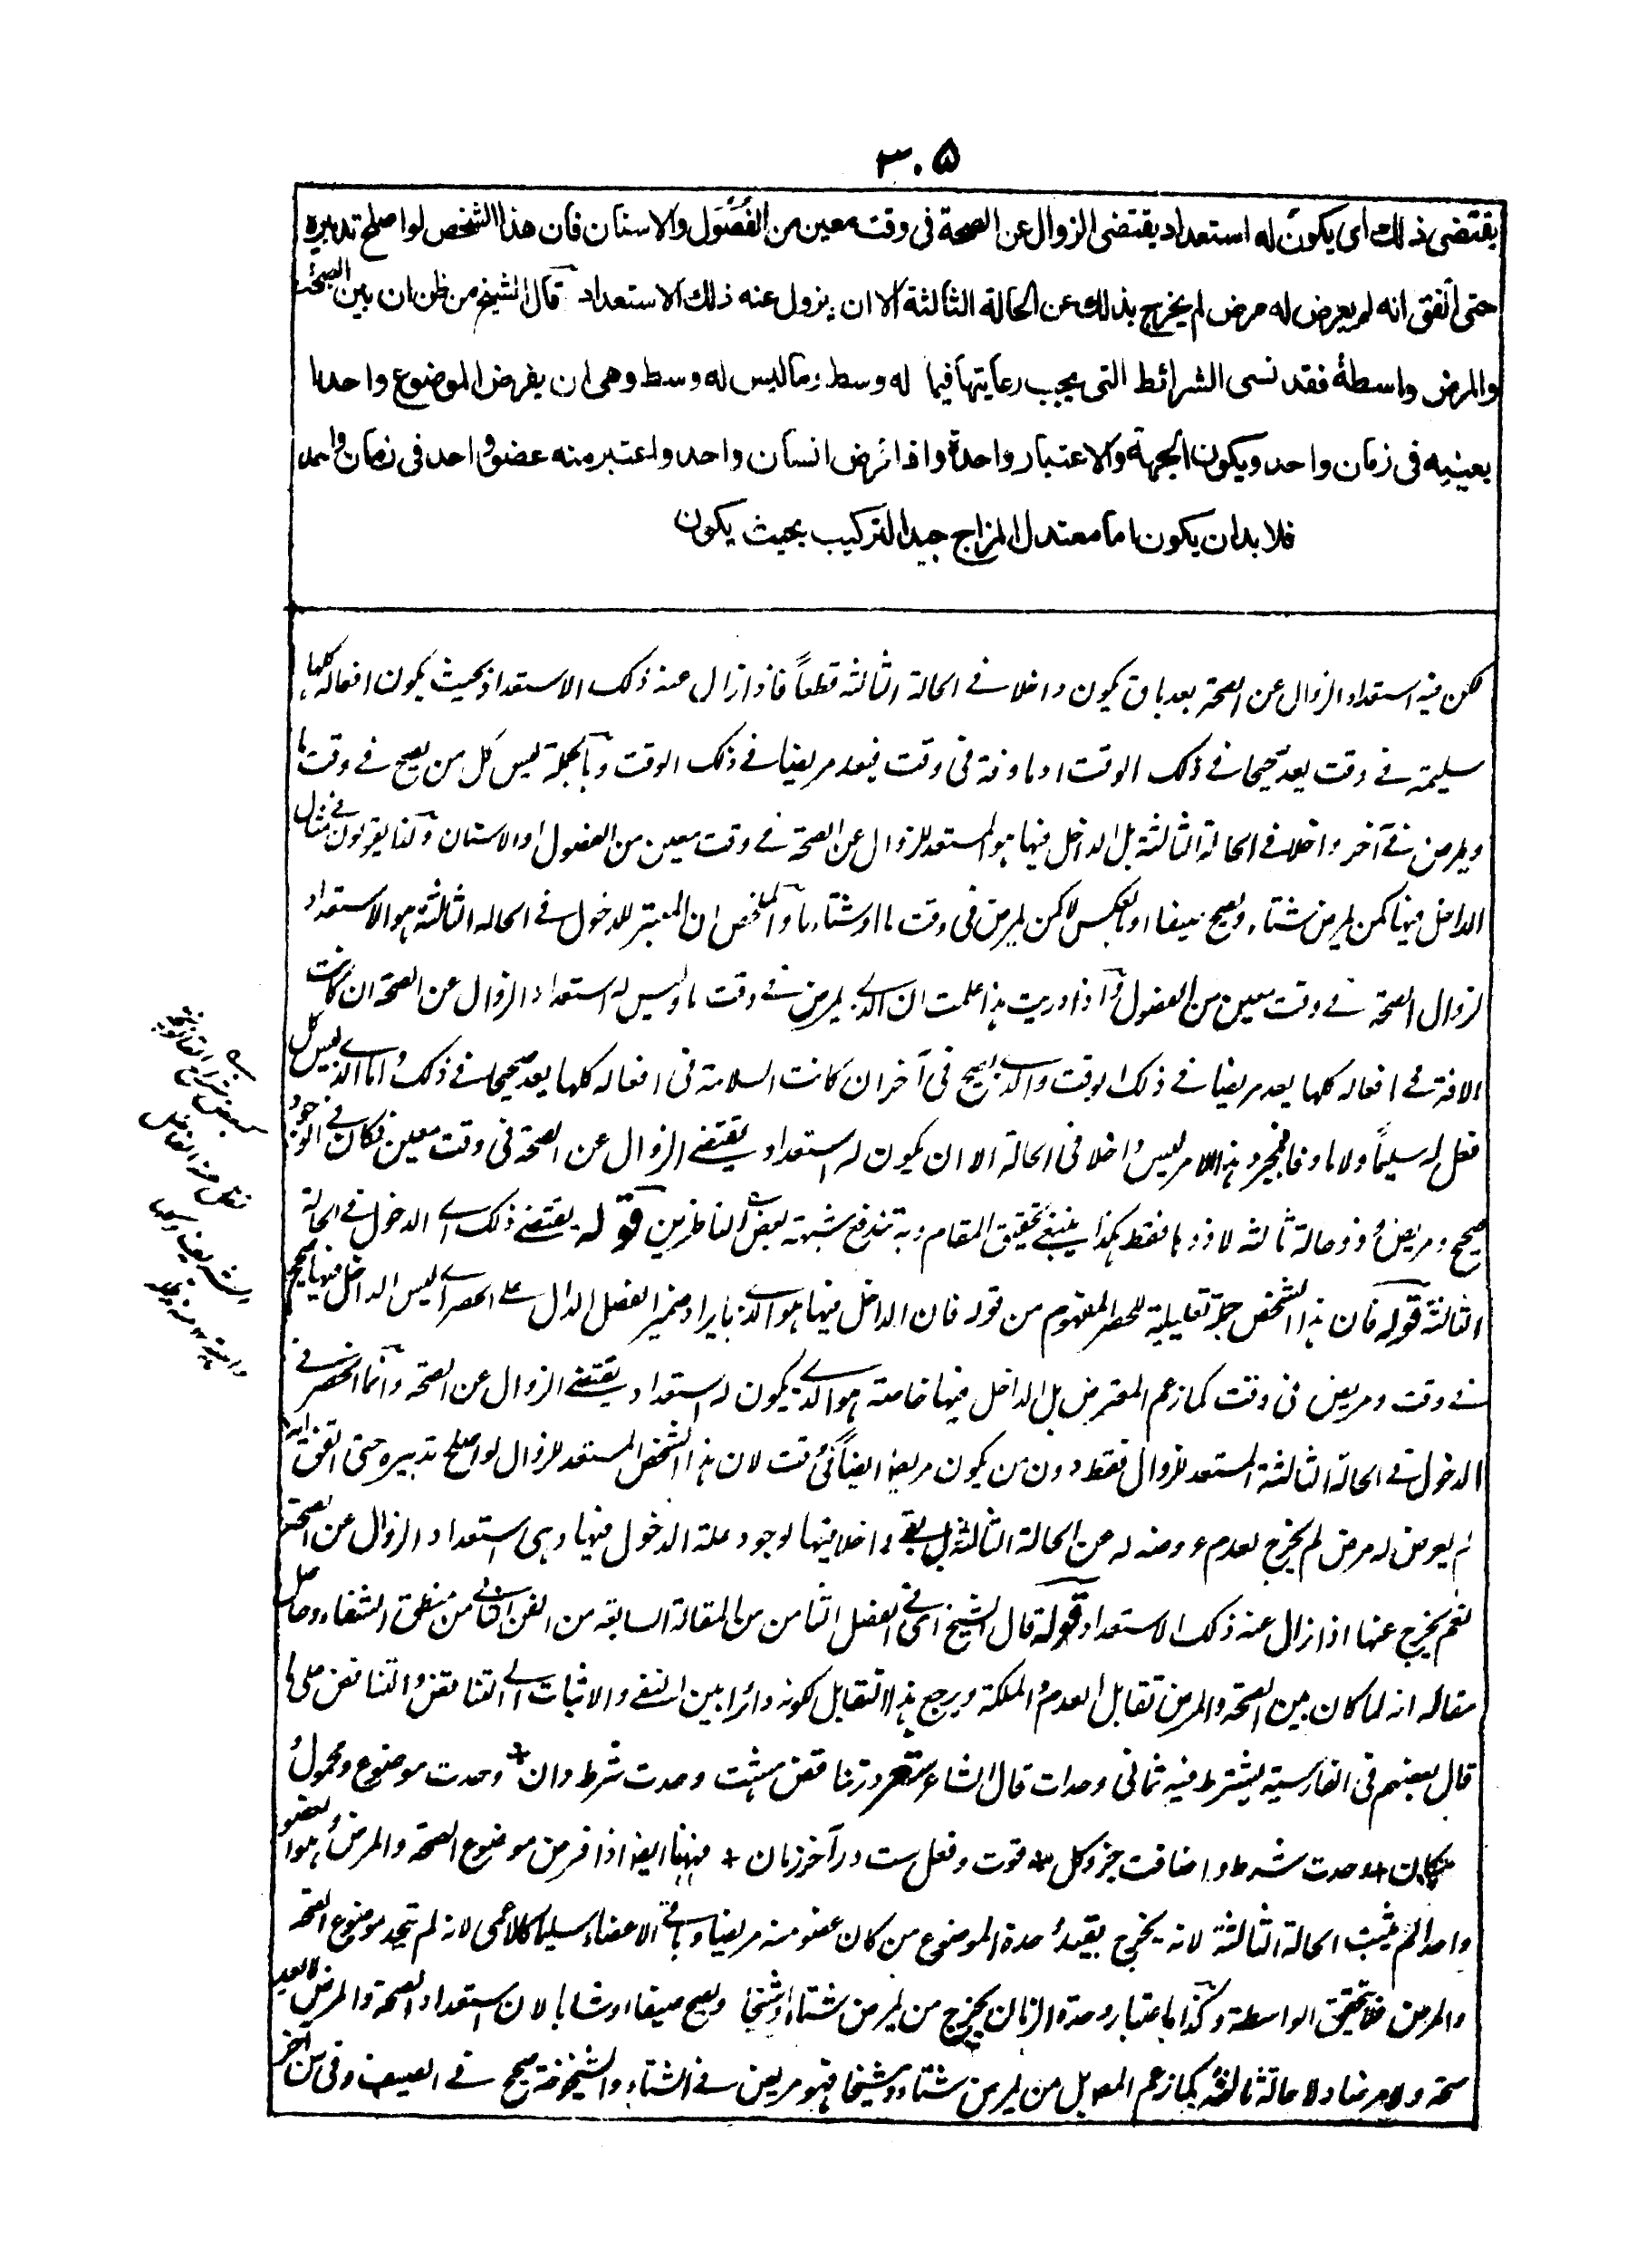 ٣٠٥
يقتضى ذلك اى يكون له استعداد يقتضى الزوال عن الصحة فى وقت معين من الفصول والاسنان فان هذا الشخص لو اصلح تدبيره
حتى اتفق انه لم يعرض له مرض لم يخرج بذلك عن الحالة الثالثة الا ان يزول عنه ذلك الاستعداد قال الشيخ من ظن ان بين الصحة
والمرض واسطة فقد نسى الشرائط التى يجب رعايتها فيما له وسط وما ليس له وسط وهى ان يفرض الموضوع واحدا
بعينه فى زمان واحد ويكون الجهة والاعتبار واحدة واذا فرض انسان واحد واعتبر منه عضو واحد فى زمان واحد
فلا بد ان يكون اما معتدل المزاج جيد التركيب بحيث يكون
لكن فيه استعداد الزوال عن الصحة بعد باق يكون داخلا فى الحالة الثالثة قطعاً فاذا زال عنه ذلك الاستعداد بحيث يكون افعاله كلها
سليمة فى وقت يعد صحيحا فى ذلك الوقت او ماوفة فى وقت فيعد مريضا فى ذلك الوقت وبالجملة ليس كل من يصح فى وقت ما
ويمرض فى آخر داخلا فى الحالة الثالثة بل الداخل فيها هو المستعد للزوال عن الصحة فى وقت معين من الفصول او الاسنان ولذا يقولون فى مثال
الداخل فيها كمن يمرض شتاء ويصح صيفا او بالعكس لا كمن يمرض فى وقت ما او شتاء ما والملخص ان المعتبر للدخول فى الحالة الثالثة هو الاستعداد
لزوال الصحة فى وقت معين من الفصول واذا دريت هذا علمت ان الذى يمرض فى وقت ما وليس له استعداد الزوال عن الصحة ان كانت
الافة فى افعاله كلها يعد مريضا فى ذلك الوقت والذى يصح فى آخر ان كانت السلامة فى افعاله كلها يعد صحيحا فى ذلك واما الذى ليس كل
فعل له سليماً ولا ماوفا فمجرد هذا الامر ليس داخلا فى الحالة الا ان يكون له استعداد يقتضى الزوال عن الصحة فى وقت معين فكان فى الوجود
صحيح ومريض وذو حالة ثالثة لا ذو ها فقط هكذا ينبغى تحقيق المقام وبه تندفع شبهة بعض الناظرين قوله يقتضى ذلك اى الدخول فى الحالة
الثالثة قوله فان هذا الشخص جملة تعليلية للحصر المفهوم من قوله فان الداخل فيها هو الذى بايراد ضمير الفصل الدال على الحصر اى ليس الداخل فيها صحيح
فى وقت ومريض فى وقت كما زعم المعترض بل الداخل فيها خاصة هو الذى يكون له استعداد يقتضى الزوال عن الصحة وانما انحصر فى
الدخول فى الحالة الثالثة المستعد للزوال فقط دون من يكون مريضا ايضاً فى وقت لان هذا الشخص المستعد للزوال لو اصلح تدبيره حتى اتفق انه
لم يعرض له مرض لم يخرج بعدم عروضه له عن الحالة الثالثة بل بقى داخلا فيها لوجود علة الدخول فيها وهى استعداد الزوال عن الصحة
نعم يخرج عنها اذا زال عنه ذلك الاستعداد قوله قال الشيخ اى فى الفصل الثامن من المقالة السابعة من الفن الثانى من منطق الشفاء وحاصل
مقاله انه لما كان بين الصحة والمرض تقابل العدم والملكة ويرجع هذا التقابل لكونه دائرا بين النفى والاثبات الى التناقض والتناقض على ما
قال بعضهم فى الفارسية يشترط فيه ثمانى وحدات قال الشاعر شعر در تناقض هشت وحدت شرط دان + وحدت موضوع ومحمول و
مكان + وحدت شرط و اضافت جزو كل + قوت وفعل ست در آخر زمان + فههنا ايضا اذا فرض موضوع الصحة والمرض وهو العضو
واحدا لم يثبت الحالة الثالثة لانه يخرج بقيد وحدة الموضوع من كان عضو منه مريضا وباقى الاعضاء سليما كالاعمى لانه لم يتحد موضوع الصحة
والمرض فلا تحقق الواسطة وكذا باعتبار وحدة الزمان يخرج من يمرض شتاء او شيخا ويصح صيفا او شابا لان استعداد الصحة والمرض لا يعد
صحة ولا مرضا ولا حالة ثالثة كما زعم المعم بل من يمرض شتاء وشيخا فهو مريض فى الشتاء والشيخوخة صحيح فى الصيف وفى سن آخر